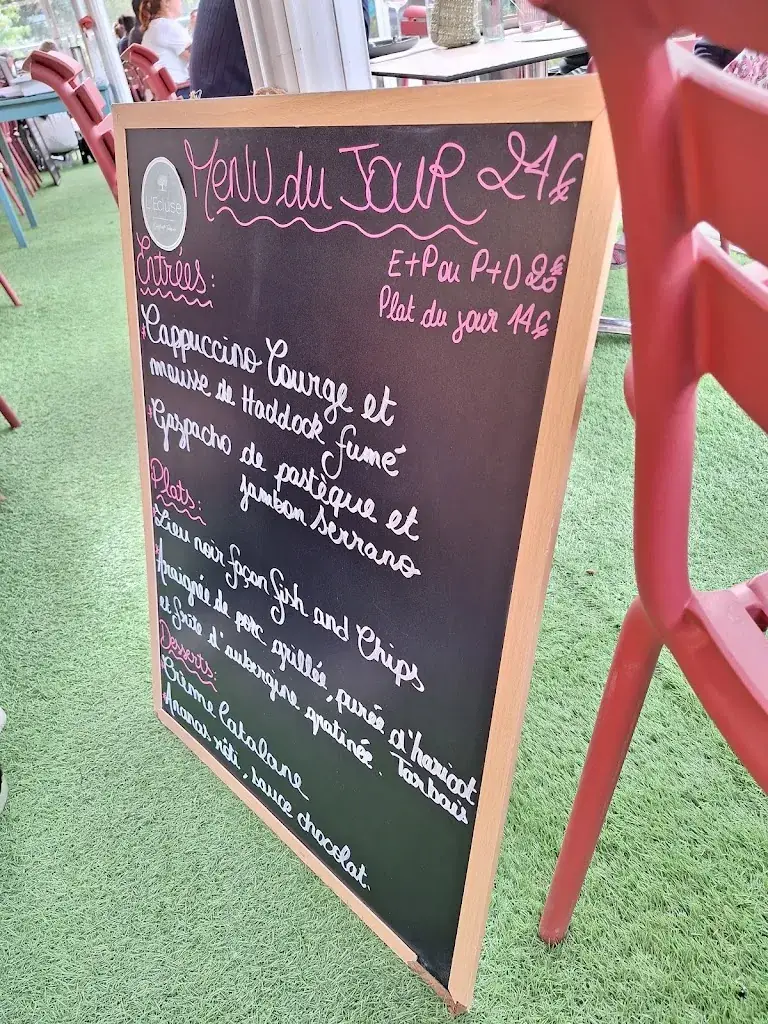 L'Écluse
MENU du JOUR 24€
E+P ou P+D 20€
Plat du jour 14€
Entrées:
*Cappuccino Courge et
mousse de Haddock fumé
*Gaspacho de pastèque et
jambon Serrano
Plats:
*Lieu noir façon fish and Chips
*Araignée de porc grillée, purée d'haricot
Tarbais
et frite d'aubergine gratinée.
Desserts:
*Crème Catalane
*Ananas rôti, sauce chocolat.